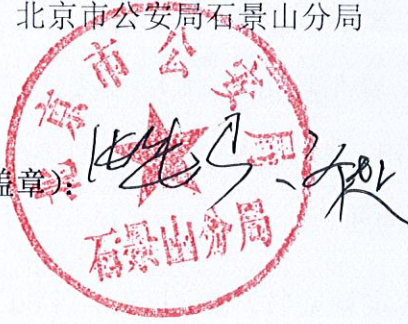 北京市公安局石景山分局
北京市公安局
盖章）：
石景山分局